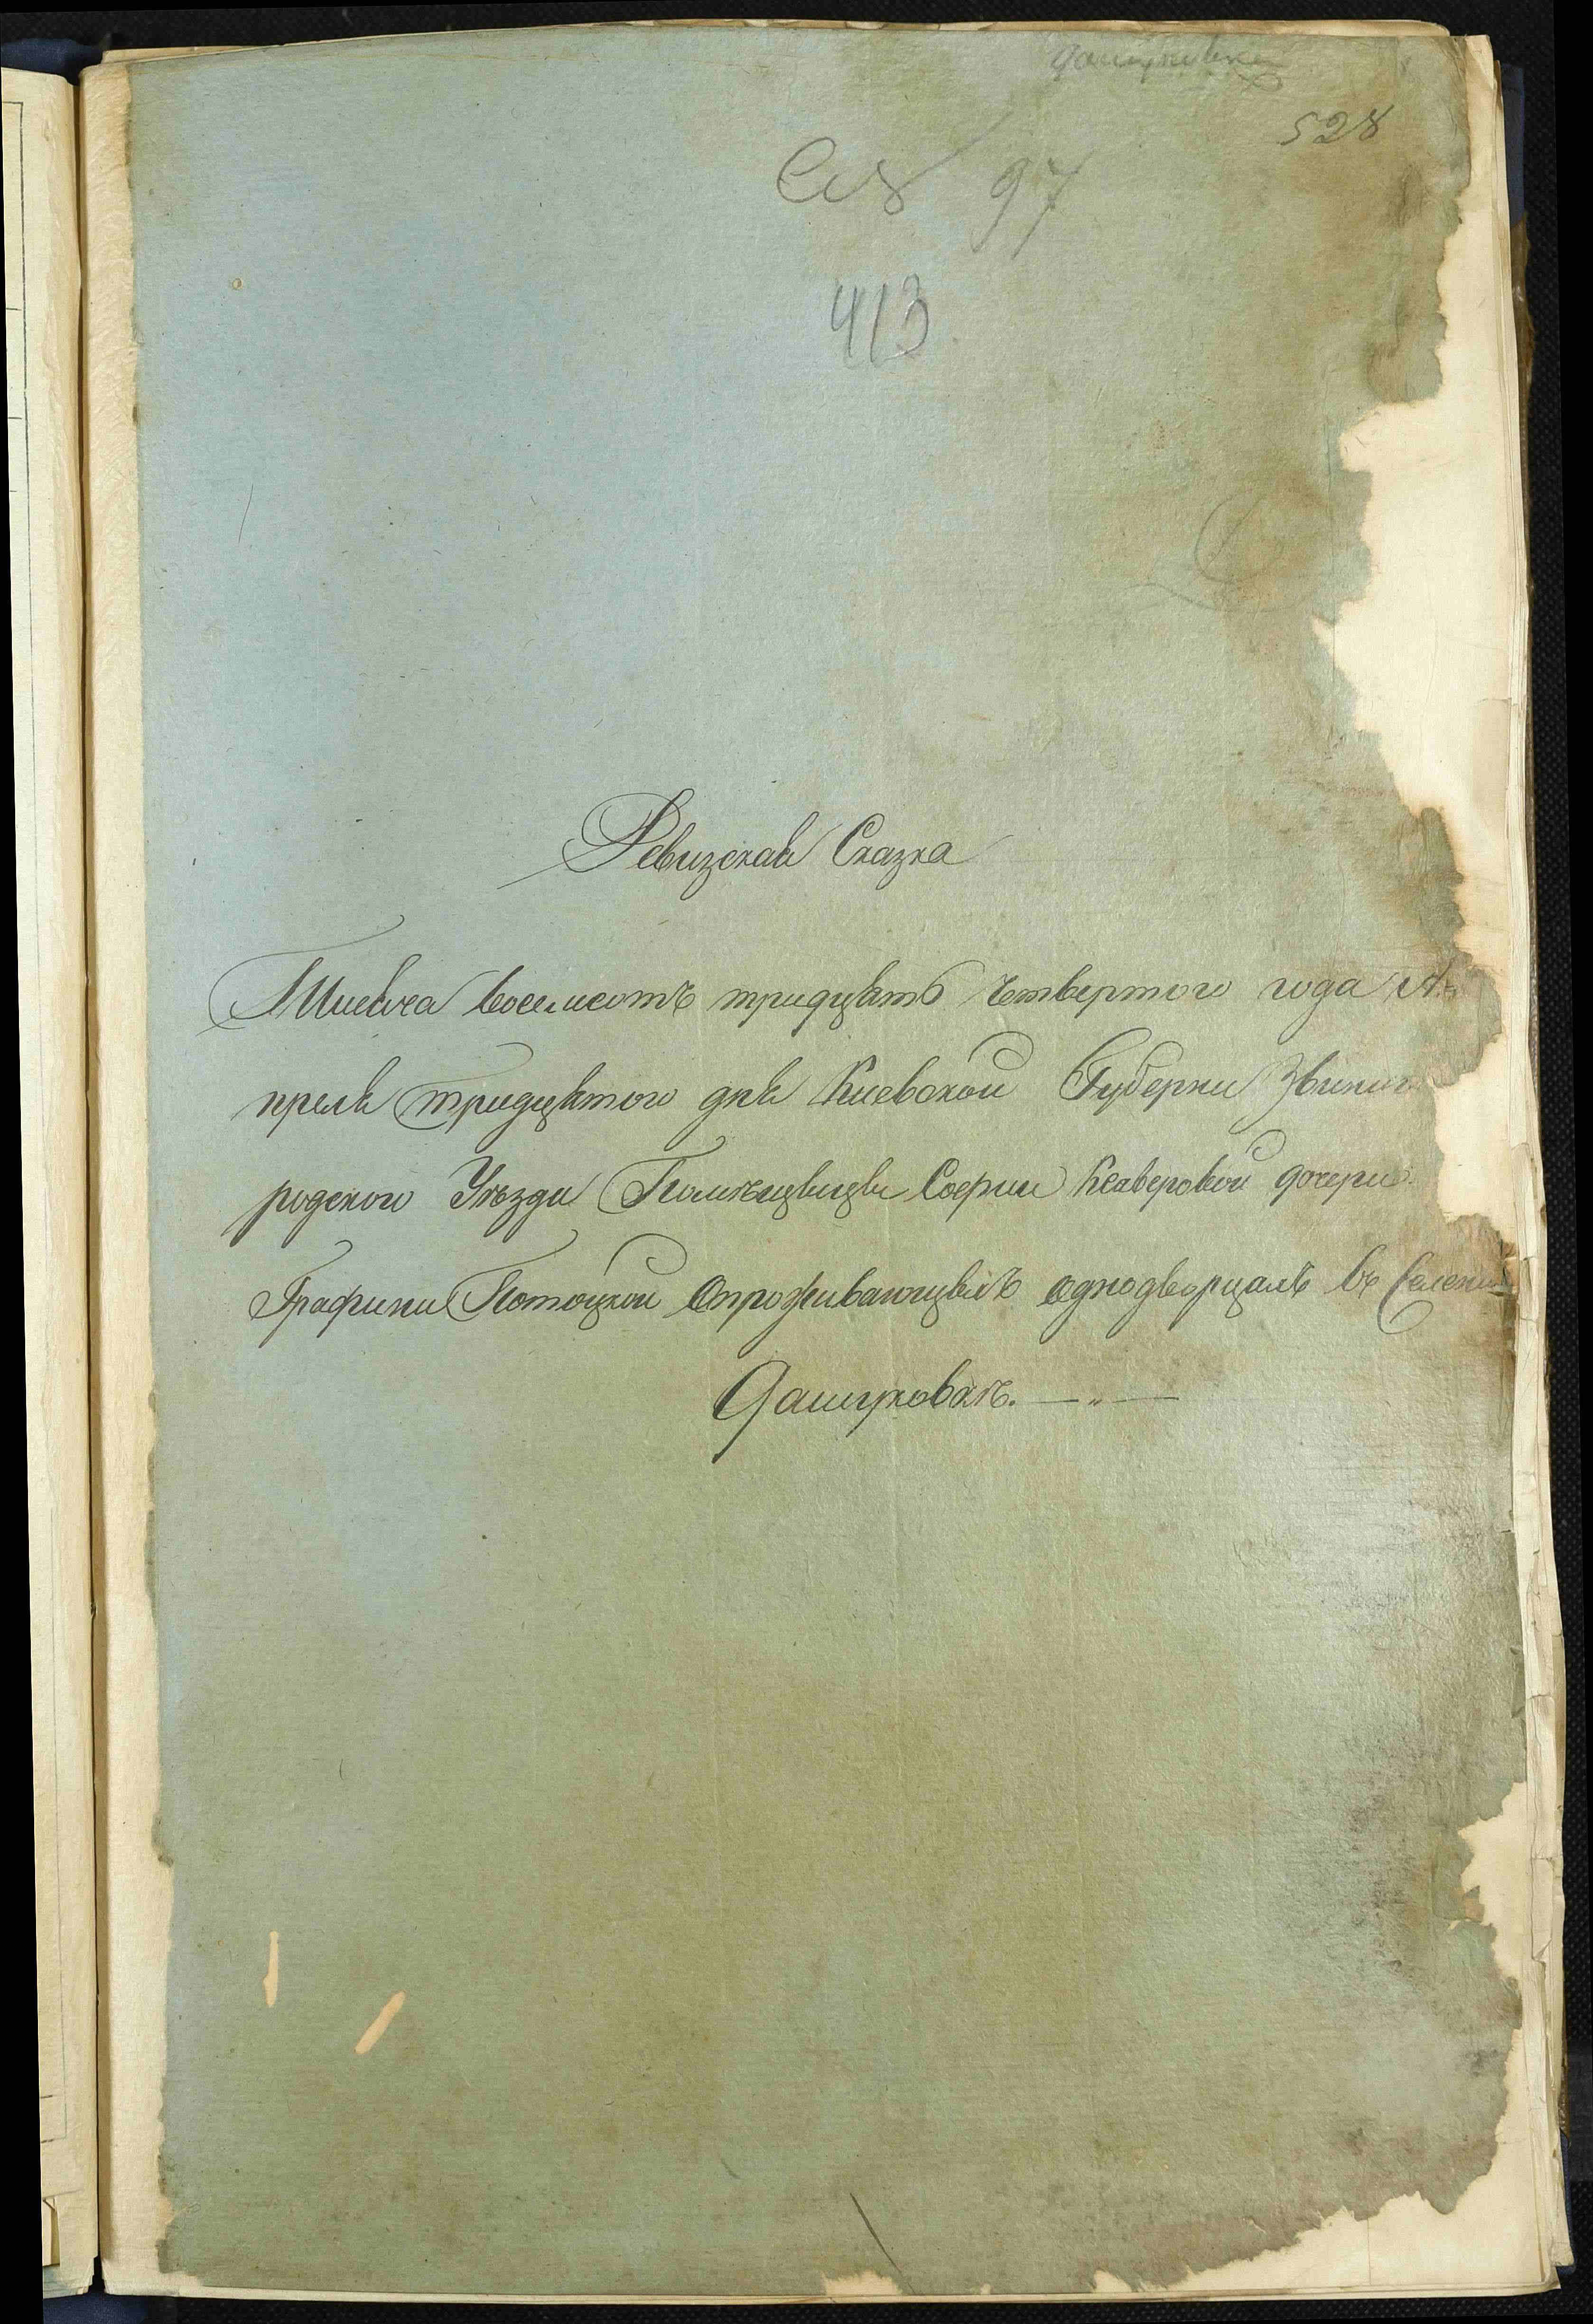 Дашуковка
528
№ 97
413
Ревизская Сказка
Тысяча восемсотъ тридцять Четвертого года А-
преля Тридцятого дня Киевской Губерни Звиниг
родского Уѣзда Помѣщицы Софии Ксаверовой дочери
Графини Потоцкой Опроживающихъ однодворцахъ въ Селени
Дашуковкѣ. — „ —